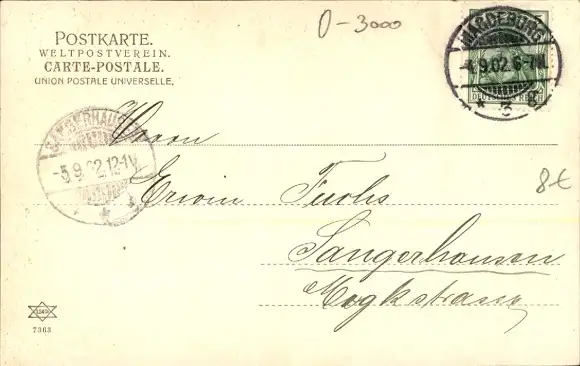 0-3000
POSTKARTE.
WELTPOSTVEREIN.
CARTE-POSTALE.
UNION POSTALE UNIVERSELLE.
MAGDEBURG
4.9.02.6-7N.
* 3 *
DEUTSCHES REICH
SANGERHAUSEN
-5.9.02.12-1V.
*
Herrn
Erwin Fuchs
8€
Sangerhausen
Mogkstrasse
7363